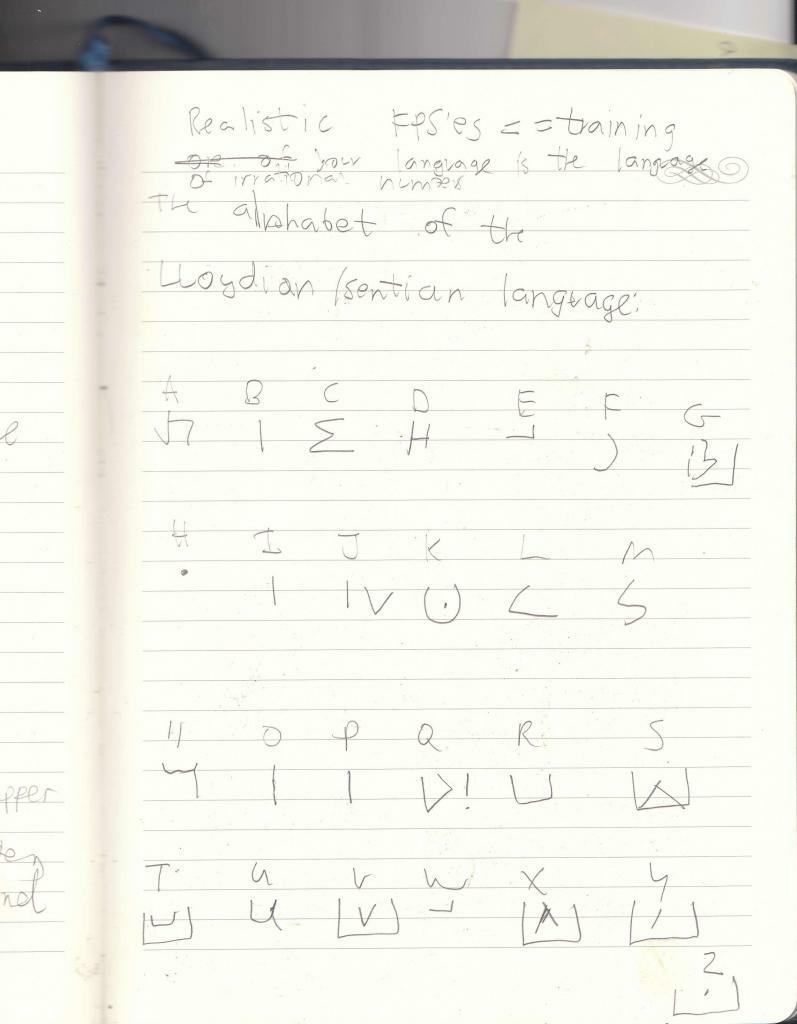 Realistic FPS'es == training
your language is the language
of irrational number
The alphabet of the
Lloydian/sentian language:
A B C D E F G
H I J K L M
e
N O P Q R S
T U V W X Y
Z
pper
nd